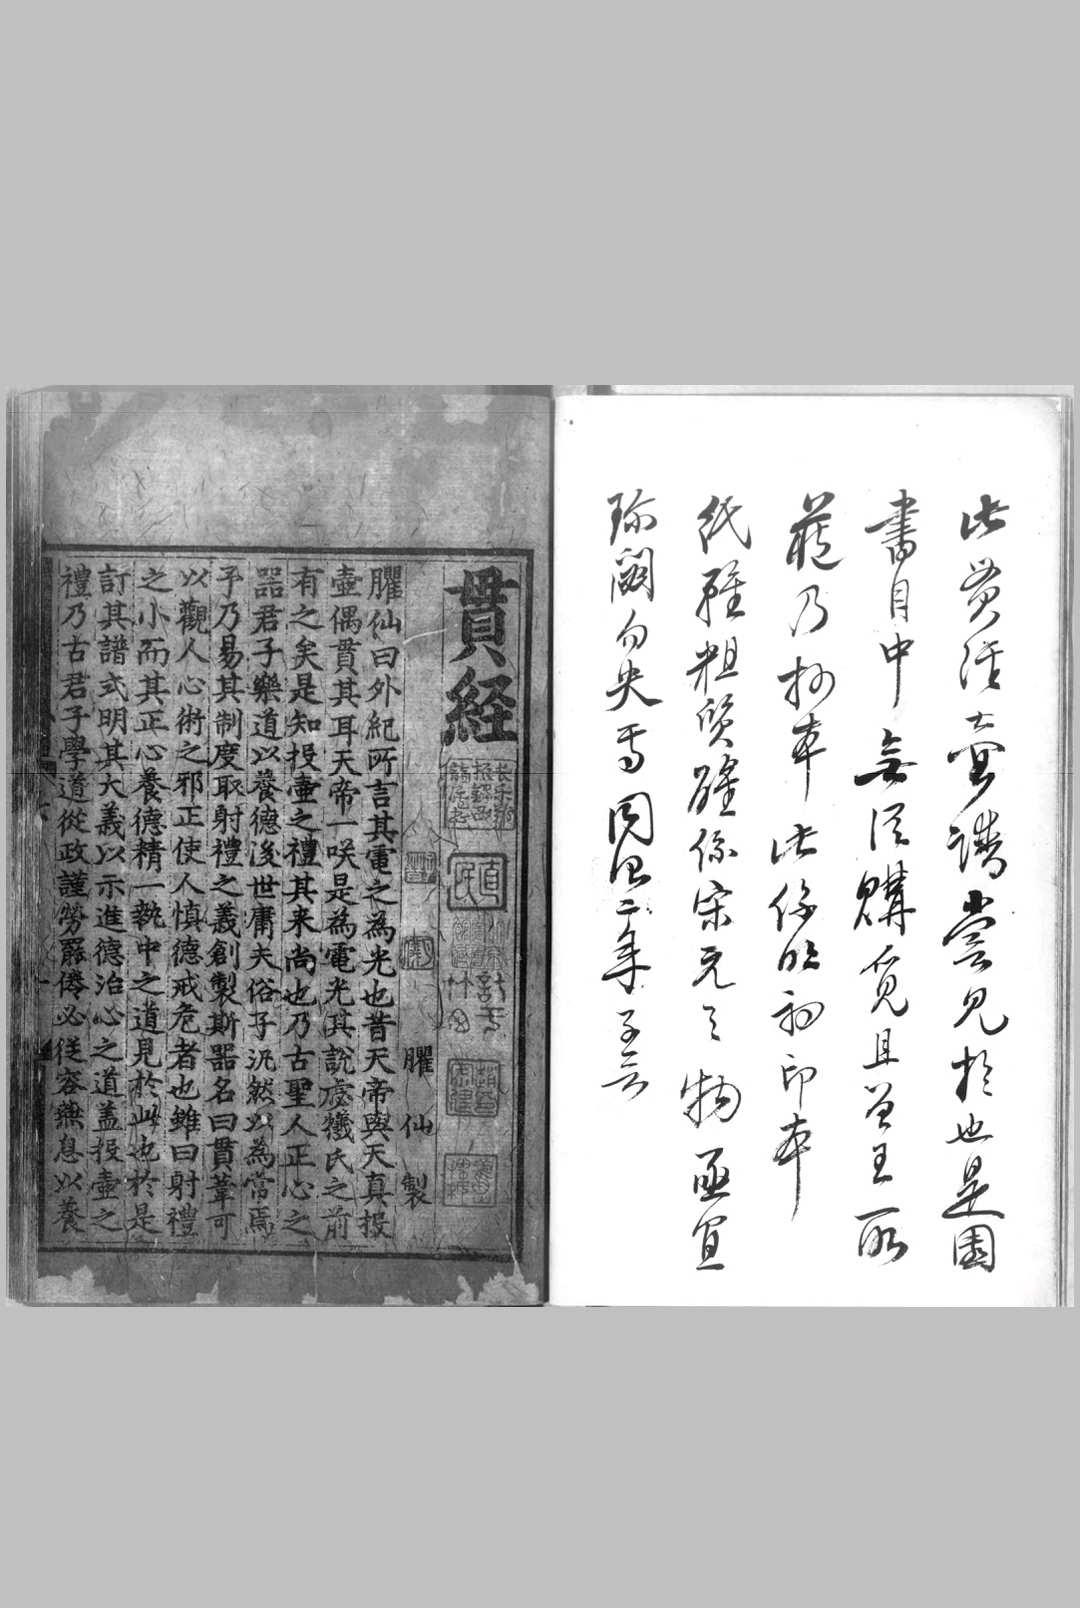 此貫經壺譜嘗見於也是園
書目中無從購覓且曾王所
藏乃抄本此係明初印本
紙雖粗質確係宋元之物亟宜
珍閟勿失焉同治二年子
貫經
臞仙製
臞仙曰外紀所言其電之為光也昔天帝與天真投
壺偶貫其耳天帝一咲是為電光其說處犧氏之前
有之矣是知投壺之禮其来尚也乃古聖人正心之
器君子樂道以養德後世庸夫俗子汎然以為常焉
予乃易其制度取射禮之義創製斯器名曰貫革可
以觀人心術之邪正使人慎德戒危者也雖曰射禮
之小而其正心養德精一執中之道見於此也於是
訂其譜式明其大義以示進德治心之道盖投壺之
禮乃古君子學道從政謹勞罷倦必從容燕息以養